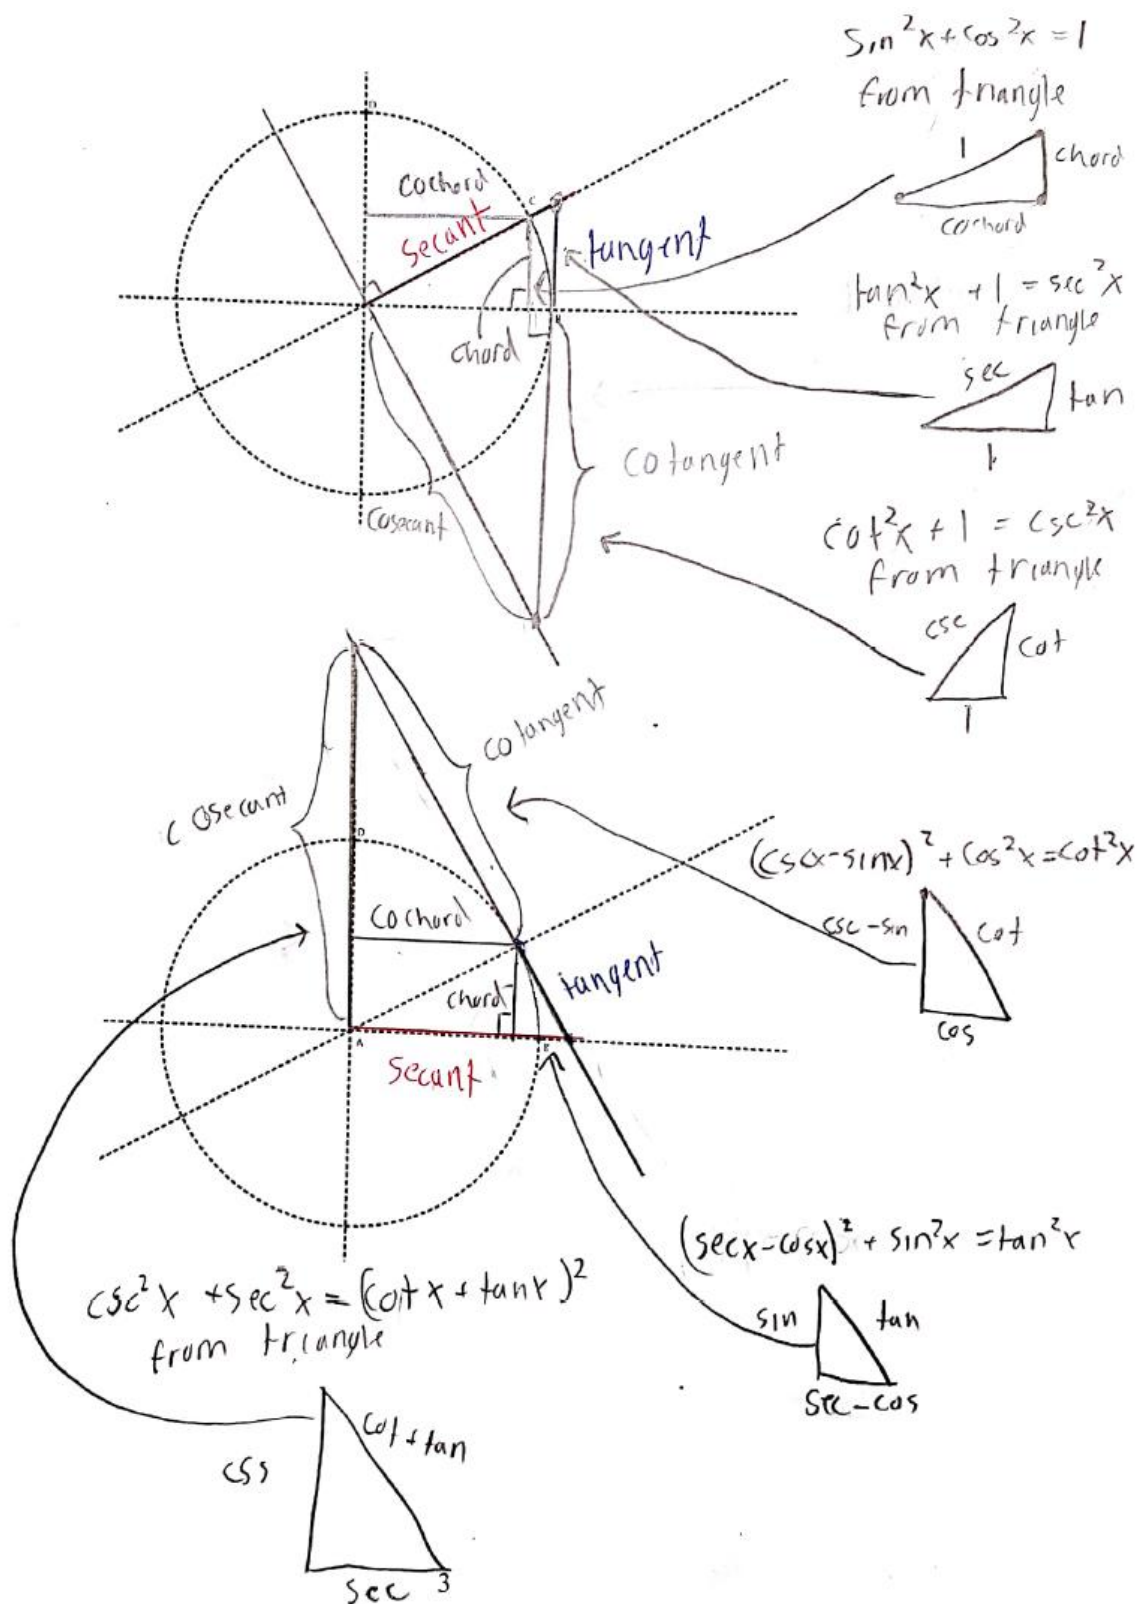 sin²x + cos²x = 1
from triangle
1
chord
cochord
D
cochord
C
secant
tangent
chord
A
cotangent
cosecant
tan²x + 1 = sec²x
from triangle
sec
tan
1
cot²x + 1 = csc²x
from triangle
csc
cot
1
cosecant
cotangent
D
cochord
chord
tangent
A
secant
(cscx-sinx)² + cos²x = cot²x
csc-sin
cot
cos
(secx-cosx)² + sin²x = tan²x
sin
tan
sec-cos
csc²x + sec²x = (cotx + tanx)²
from triangle
cot + tan
sec
3